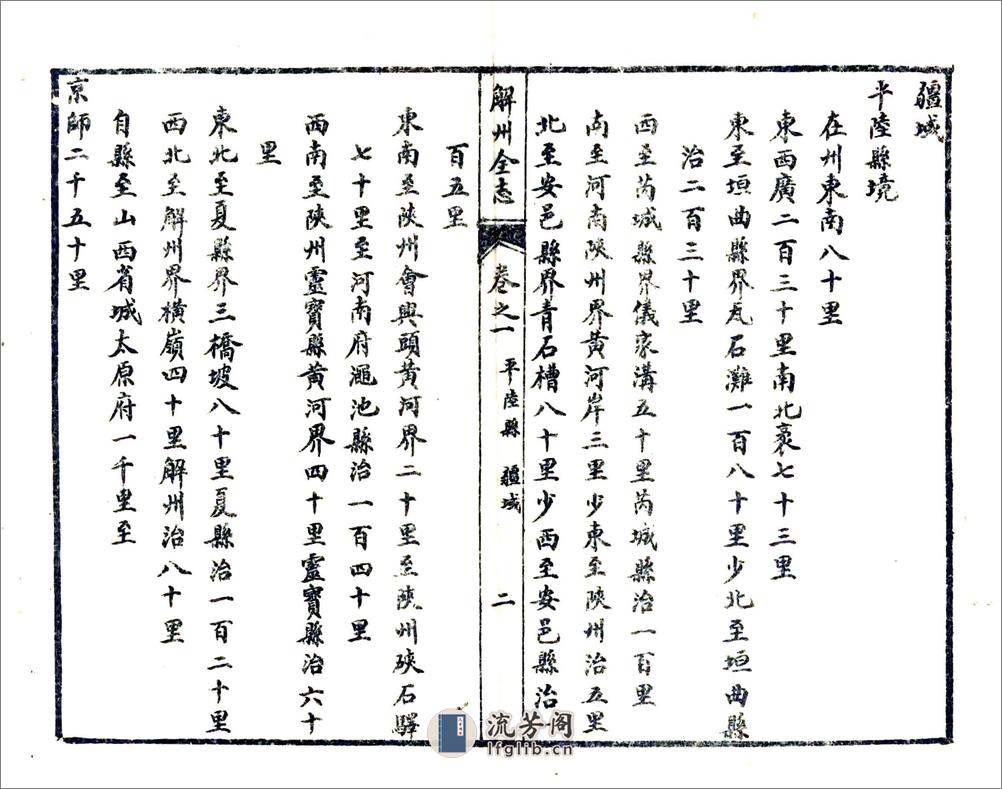 疆域
平陸縣境
在州東南八十里
東西廣二百三十里南北袤七十三里
東至垣曲縣界瓦石灘一百八十里少北至垣曲縣
治二百三十里
西至芮城縣界儀家溝五十里芮城縣治一百里
南至河南陝州界黃河岸三里少東至陝州治五里
北至安邑縣界青石槽八十里少西至安邑縣治
解州全志
卷之一
平陸縣 疆域
二
百五里
東南至陝州會興頭黃河界二十里至陝州硤石驛
七十里至河南府澠池縣治一百四十里
西南至陝州靈寶縣黃河界四十里靈寶縣治六十
里
東北至夏縣界三橋坡八十里夏縣治一百二十里
西北至解州界橫嶺四十里解州治八十里
自縣至山西省城太原府一千里至
京師二千五十里
流芳阁
lfglib.cn